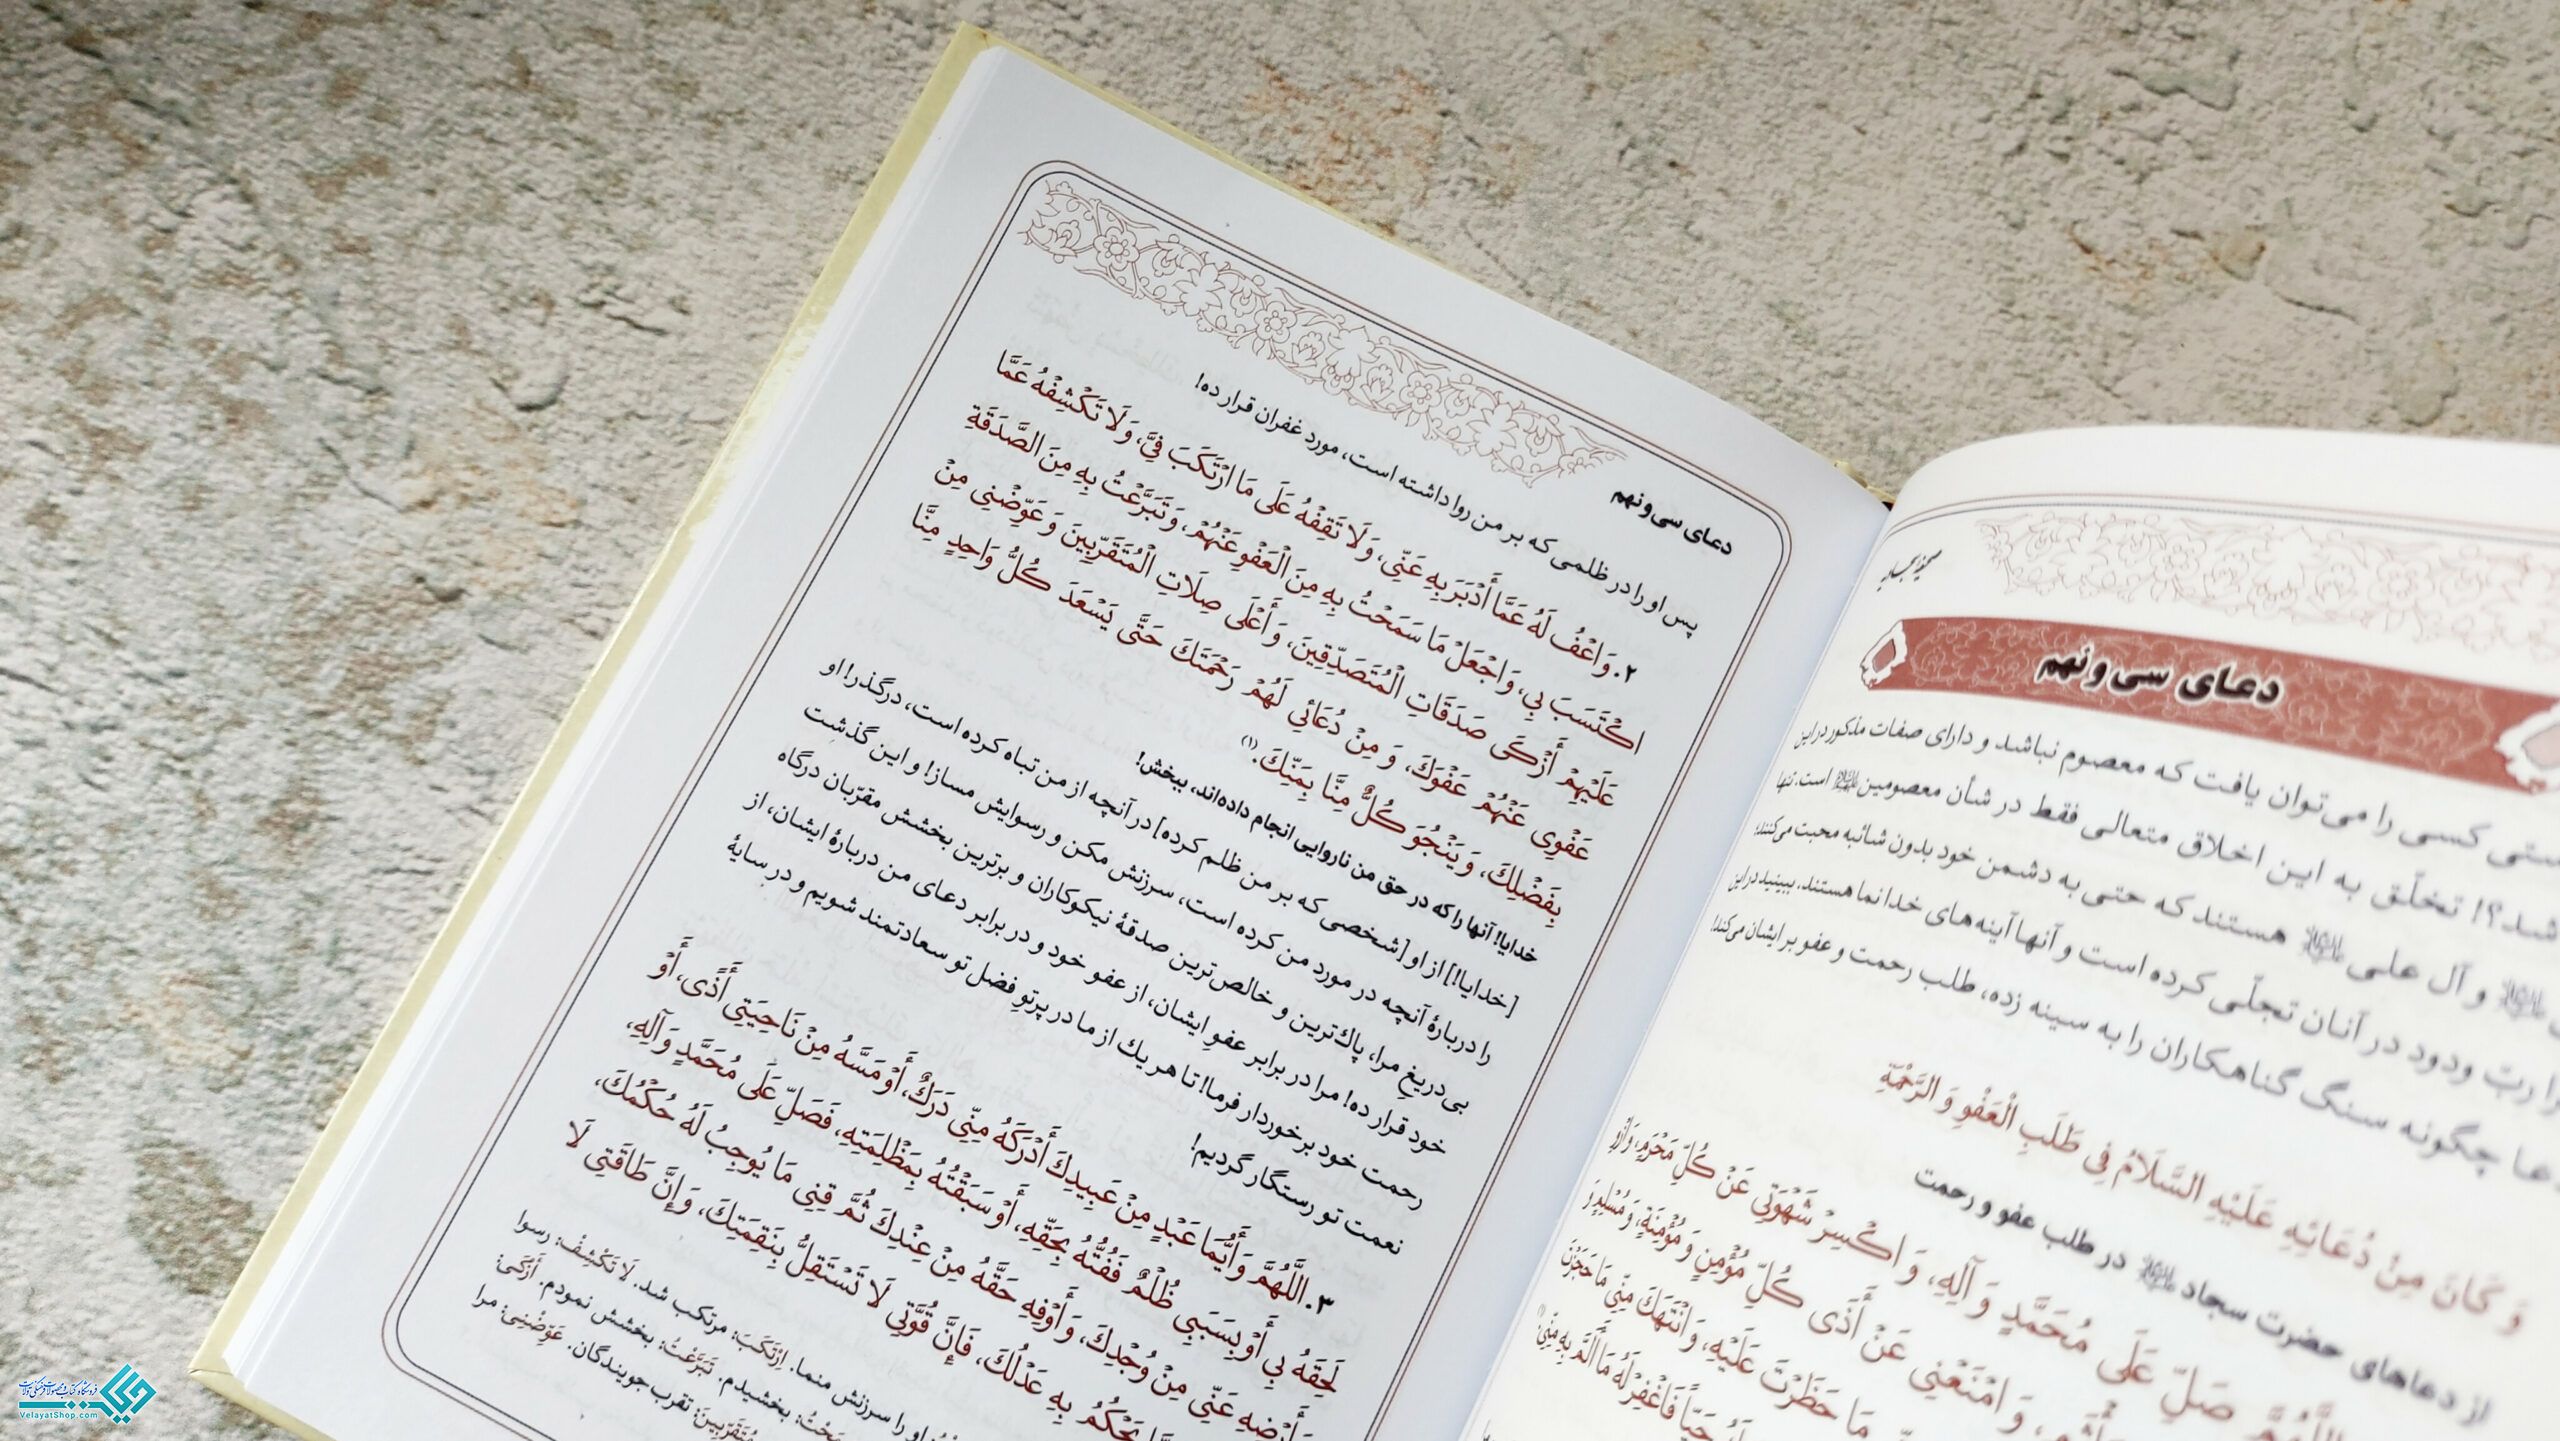 صحیفه سجادیه
دعای سی و نهم
کسی را می‌توان یافت که معصوم نباشد و دارای صفات مذکور در این
شد؟! تخلّق به این اخلاق متعالی فقط در شأن معصومین است. تنها
و آل علی هستند که حتی به دشمن خود بدون شائبه محبت می‌کنند؛
ربّ ودود در آنان تجلّی کرده است و آنها آینه‌های خدانما هستند. ببینید در این
چگونه سنگ گناهکاران را به سینه زده، طلب رحمت و عفو برایشان می‌کند!
وَ كَانَ مِنْ دُعَائِهِ عَلَيْهِ السَّلَامُ فِي طَلَبِ الْعَفْوِ وَ الرَّحْمَةِ
از دعاهای حضرت سجاد در طلب عفو و رحمت
اللَّهُمَّ صَلِّ عَلَى مُحَمَّدٍ وَ آلِهِ، وَ اكْسِرْ شَهْوَتِي عَنْ كُلِّ مَحْرَمٍ، وَ ازْوِ
مَأْثَمٍ، وَ امْنَعْنِي عَنْ أَذَى كُلِّ مُؤْمِنٍ وَ مُؤْمِنَةٍ، وَ مُسْلِمٍ وَ
مَا حَظَرْتَ عَلَيْهِ، وَ انْتَهَكَ مِنِّي مَا حَجَزْتَ
حَيّاً فَاغْفِرْ لَهُ مَا أَلَمَّ بِهِ مِنِّي،
دعای سی و نهم
پس او را در ظلمی که بر من روا داشته است، مورد غفران قرار ده!
۲. وَ اعْفُ لَهُ عَمَّا أَدْبَرَ بِهِ عَنِّي، وَ لَا تَقِفْهُ عَلَى مَا ارْتَكَبَ فِيَّ، وَ لَا تَكْشِفْهُ عَمَّا
اكْتَسَبَ بِي، وَ اجْعَلْ مَا سَمَحْتُ بِهِ مِنَ الْعَفْوِ عَنْهُمْ، وَ تَبَرَّعْتُ بِهِ مِنَ الصَّدَقَةِ
عَلَيْهِمْ أَزْكَى صَدَقَاتِ الْمُتَصَدِّقِينَ، وَ أَعْلَى صِلَاتِ الْمُتَقَرِّبِينَ وَ عَوِّضْنِي مِنْ
عَفْوِي عَنْهُمْ عَفْوَكَ، وَ مِنْ دُعَائِي لَهُمْ رَحْمَتَكَ حَتَّى يَسْعَدَ كُلُّ وَاحِدٍ مِنَّا
بِفَضْلِكَ، وَ يَنْجُوَ كُلٌّ مِنَّا بِمَنِّكَ.(۱)
خدایا! آنها را که در حق من ناروایی انجام داده‌اند، ببخش!
[خدایا!] از او [شخصی که بر من ظلم کرده] در آنچه از من تباه کرده است، درگذر! او
را دربارهٔ آنچه در مورد من کرده است، سرزنش مکن و رسوایش مساز! و این گذشت
بی‌دریغ مرا، پاک‌ترین و خالص‌ترین صدقهٔ نیکوکاران و برترین بخشش مقرّبان درگاه
خود قرار ده! مرا در برابر عفوِ ایشان، از عفو خود و در برابر دعای من دربارهٔ ایشان، از
رحمت خود برخوردار فرما! تا هر یك از ما در پرتو فضل تو سعادتمند شویم و در سایهٔ
نعمت تو رستگار گردیم!
۳. اللَّهُمَّ وَ أَيُّمَا عَبْدٍ مِنْ عَبِيدِكَ أَدْرَكَهُ مِنِّي دَرَكٌ، أَوْ مَسَّهُ مِنْ نَاحِيَتِي أَذًى، أَوْ
لَحِقَهُ بِي أَوْ بِسَبَبِي ظُلْمٌ فَفُتُّهُ بِحَقِّهِ، أَوْ سَبَقْتُهُ بِمَظْلِمَتِهِ، فَصَلِّ عَلَى مُحَمَّدٍ وَ آلِهِ،
وَ أَرْضِهِ عَنِّي مِنْ وُجْدِكَ، وَ أَوْفِهِ حَقَّهُ مِنْ عِنْدِكَ ثُمَّ قِنِي مَا يُوجِبُ لَهُ حُكْمُكَ،
يَحْكُمُ بِهِ عَدْلُكَ، فَإِنَّ قُوَّتِي لَا تَسْتَقِلُّ بِنَقِمَتِكَ، وَ إِنَّ طَاقَتِي لَا
او را سرزنش منما. اِرْتَکَبَ: مرتکب شد. لَا تَکْشِفْ: رسوا
بخشیدم. تَبَرَّعْتُ: بخشش نمودم. أَزْکَی:
مُتَقَرِّبِینَ: تقرب جویندگان. عَوِّضْنِی: مرا
فروشگاه کتاب و محصولات فرهنگی ولایت
VelayatShop.com